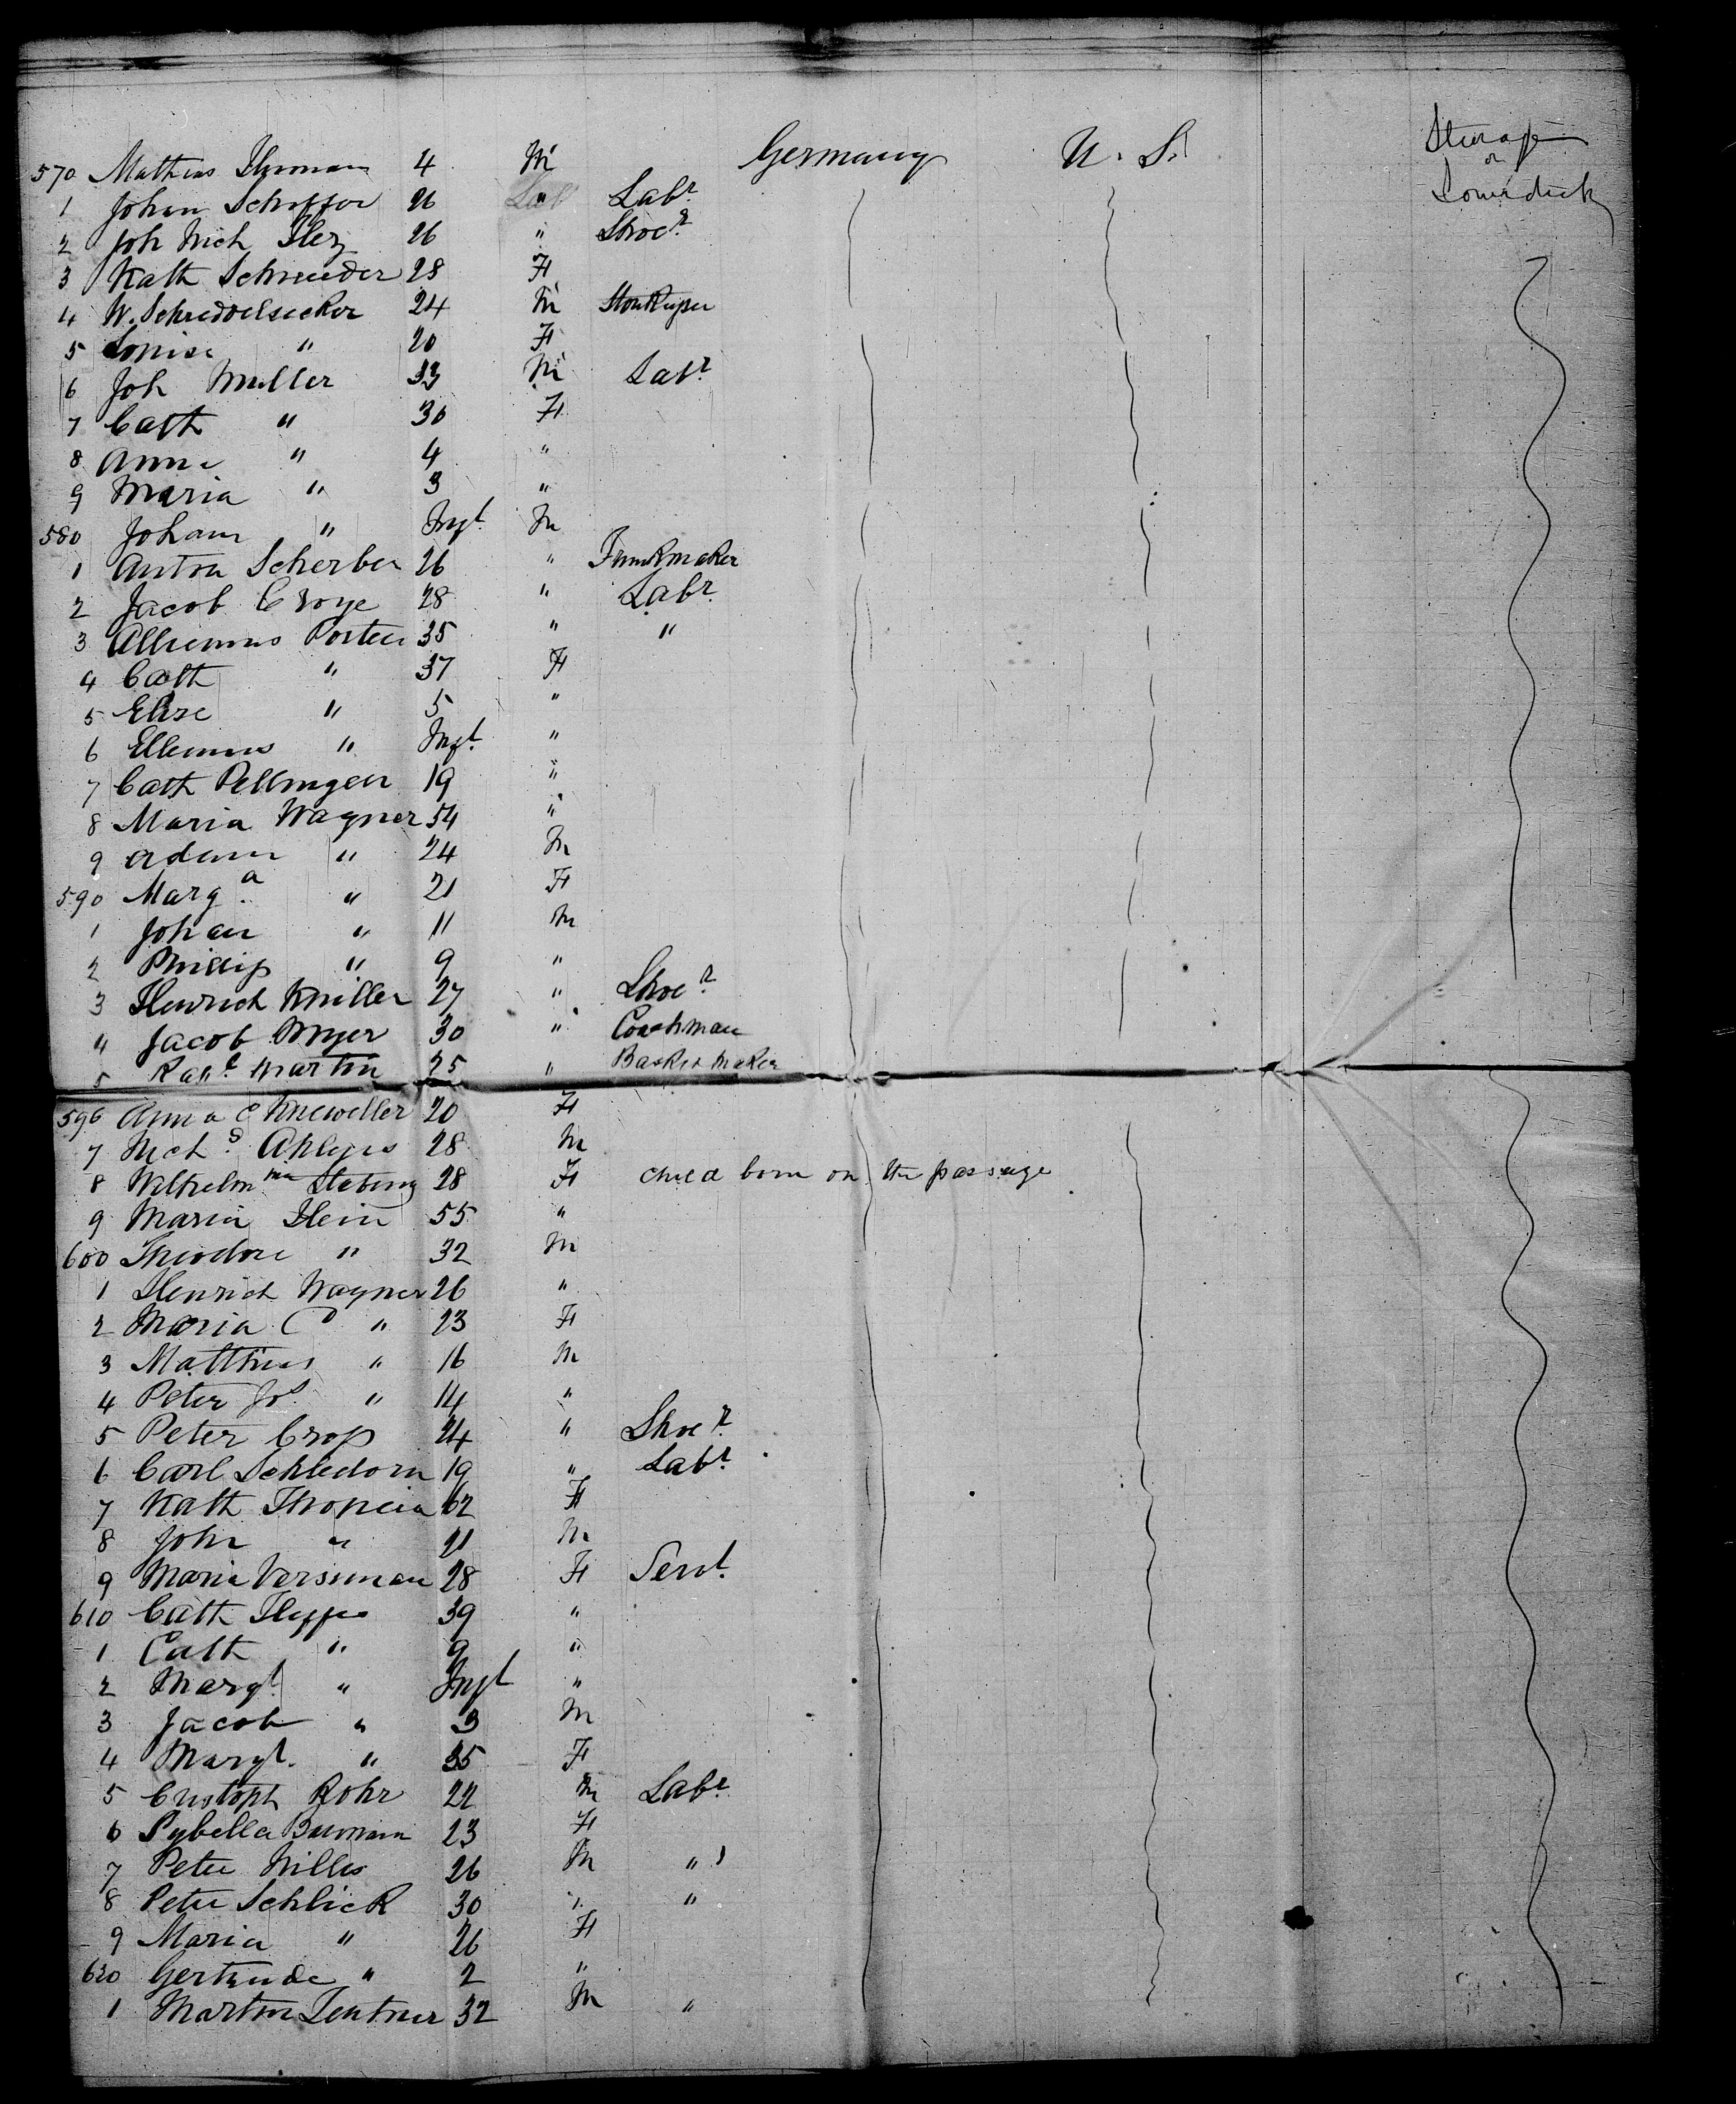 570 Mathias 4 M Germany U. S. Steerage
or
1 Johan Schiffer 26 " Labr Lowerdeck
2 Joh Nich 26 " Shoer
3 Kath Schneider 28 F
4 W. 24 M Storekeeper
5 Louise " 20 F
6 Joh Muller 33 M Labr
7 Cath " 30 F
8 Anna " 4 "
9 Maria " 3 "
580 Johann " Inft M
1 Anton Scherber 26 " Trunkmaker
2 Jacob 28 " Labr
3 35 " "
4 Cath " 37 F
5 Elise " 5 "
6 " Inft "
7 Cath Pellinger 19 "
8 Maria Wagner 54 "
9 Adam " 24 M
590 Marga " 21 F
1 Johan " 11 M
2 Phillip " 9 "
3 Heinrich 27 " Shoer
4 Jacob Myer 30 " Coachman
5 Martin 25 " Basket Maker
596 Anna C 20 F
7 28 M
8 28 F child born on the passage
9 Maria Hein 55 "
600 Theodore " 32 M
1 Heinrich Wagner 26 "
2 Maria C " 23 F
3 Matthias " 16 M
4 Peter Jos " 14 "
5 Peter 24 " Shoer
6 Carl Schledorn 19 " Labr
7 Kath 62 F
8 John " 21 M
9 Maria 28 F Servt
610 Cath 39 "
1 Cath " 9 "
2 Margt " Inft "
3 Jacob " 3 M
4 Margt " 35 F
5 Cristoph Rohr 22 M Labr
6 Sybella 23 F
7 Peter Willes 26 M "
8 Peter Schlick 30 " "
9 Maria " 26 F
620 Gertrude " 2 "
1 Martin Lentner 32 M "